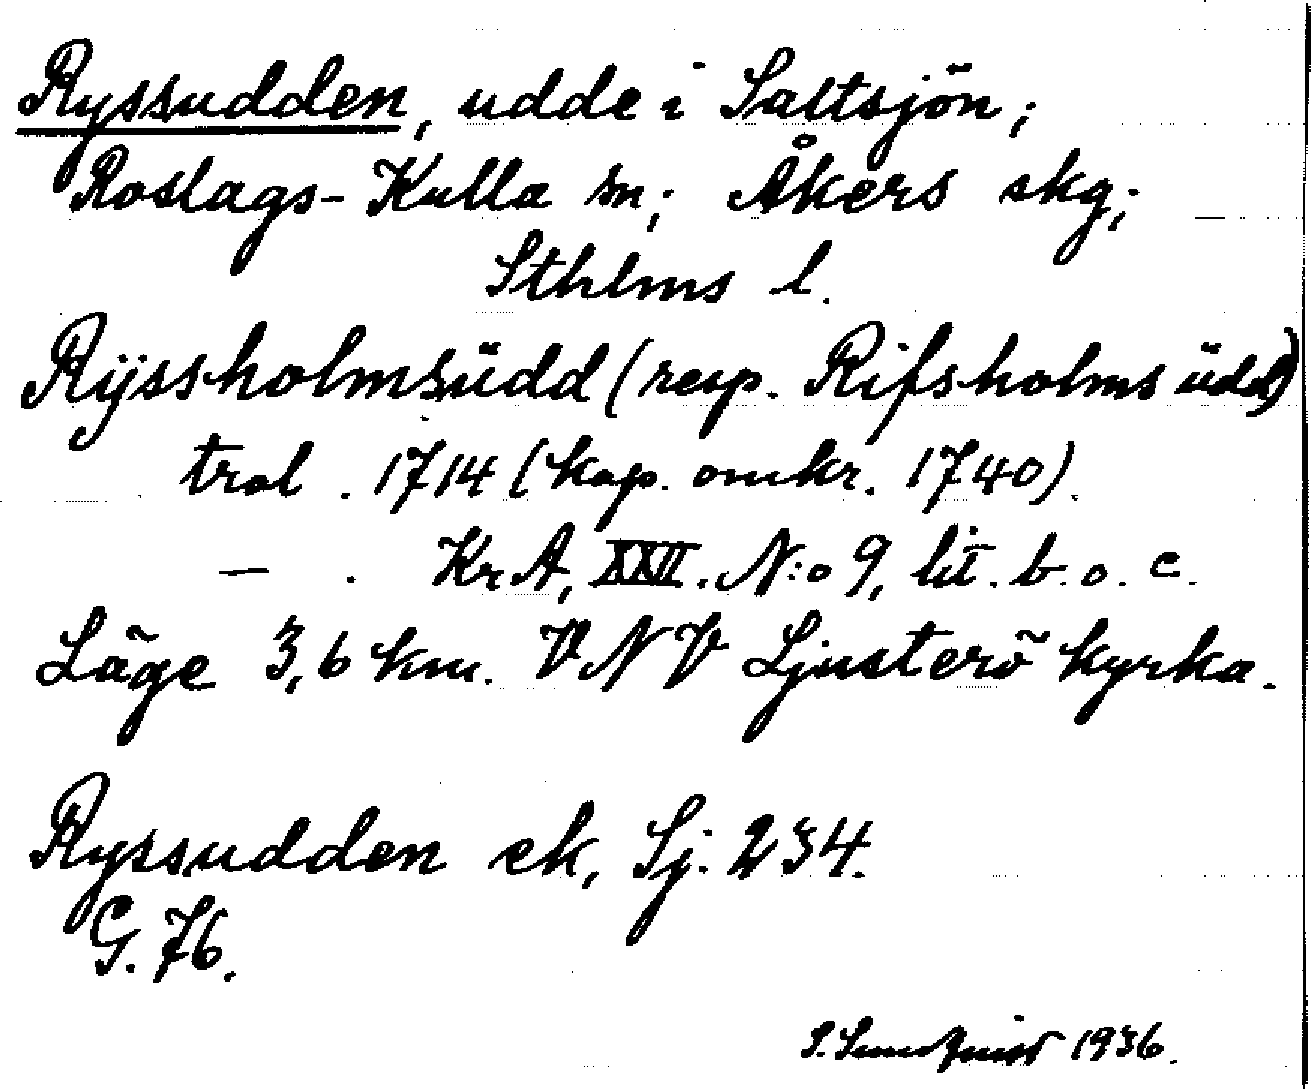 Ryssudden, udde i Saltsjön;
Roslags-Kulla sn; Åkers skg;
Sthlms l.
Rÿssholmsüdd (resp. Rifsholms üdd)
trol. 1714 (kop. omkr. 1740).
— . KrA, XXII. N:o 9, lit. b. o. c.
Läge 3,6 km. VNV Ljusterö kyrka.
Ryssudden ek, Sj. 234.
G. 76.
S. Sundquist 1936.